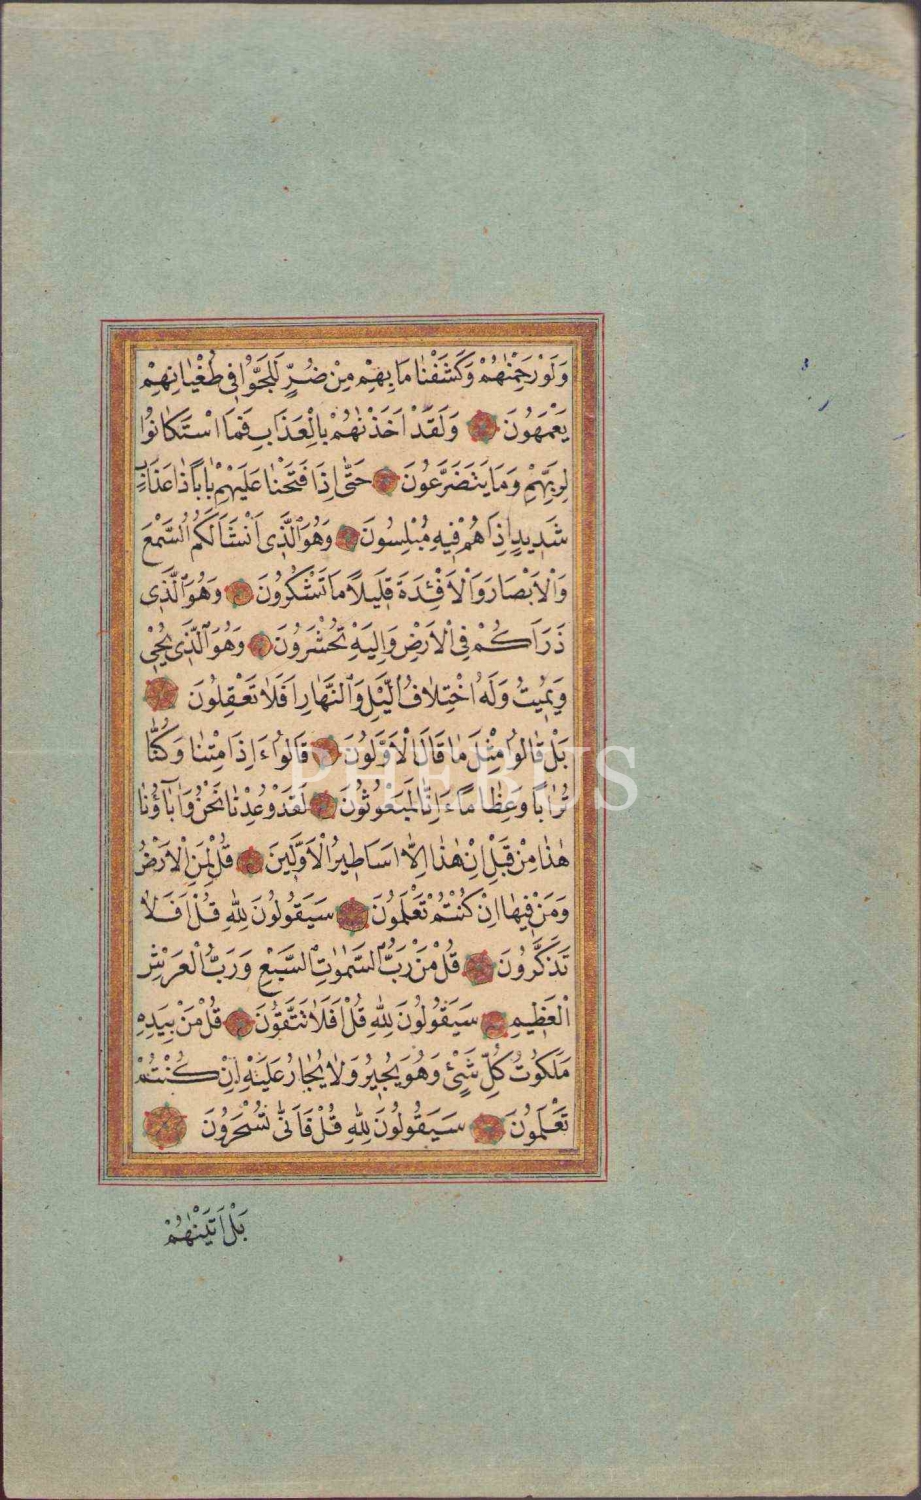 وَلَوْ رَحِمْنَاهُمْ وَكَشَفْنَا مَا بِهِمْ مِنْ ضُرٍّ لَلَجُّوا فِى طُغْيَانِهِمْ
يَعْمَهُونَ وَلَقَدْ اَخَذْنَاهُمْ بِالْعَذَابِ فَمَا اسْتَكَانُوا
لِرَبِّهِمْ وَمَا يَتَضَرَّعُونَ حَتّٰى اِذَا فَتَحْنَا عَلَيْهِمْ بَابًا ذَا عَذَابٍ
شَدِيدٍ اِذَا هُمْ فِيهِ مُبْلِسُونَ وَهُوَ الَّذِى اَنْشَاَ لَكُمُ السَّمْعَ
وَالْاَبْصَارَ وَالْاَفْئِدَةَ قَلِيلًا مَا تَشْكُرُونَ وَهُوَ الَّذِى
ذَرَاَكُمْ فِى الْاَرْضِ وَاِلَيْهِ تُحْشَرُونَ وَهُوَ الَّذِى يُحْيِى
وَيُمِيتُ وَلَهُ اخْتِلَافُ الَّيْلِ وَالنَّهَارِ اَفَلَا تَعْقِلُونَ
بَلْ قَالُوا مِثْلَ مَا قَالَ الْاَوَّلُونَ قَالُوا ءَاِذَا مِتْنَا وَكُنَّا
تُرَابًا وَعِظَامًا ءَاِنَّا لَمَبْعُوثُونَ لَقَدْ وُعِدْنَا نَحْنُ وَاٰبَاؤُنَا
هٰذَا مِنْ قَبْلُ اِنْ هٰذَا اِلَّا اَسَاطِيرُ الْاَوَّلِينَ قُلْ لِمَنِ الْاَرْضُ
وَمَنْ فِيهَا اِنْ كُنْتُمْ تَعْلَمُونَ سَيَقُولُونَ لِلّٰهِ قُلْ اَفَلَا
تَذَكَّرُونَ قُلْ مَنْ رَبُّ السَّمٰوَاتِ السَّبْعِ وَرَبُّ الْعَرْشِ
الْعَظِيمِ سَيَقُولُونَ لِلّٰهِ قُلْ اَفَلَا تَتَّقُونَ قُلْ مَنْ بِيَدِهِ
مَلَكُوتُ كُلِّ شَىْءٍ وَهُوَ يُجِيرُ وَلَا يُجَارُ عَلَيْهِ اِنْ كُنْتُمْ
تَعْلَمُونَ سَيَقُولُونَ لِلّٰهِ قُلْ فَاَنّٰى تُسْحَرُونَ
بَلْ اَتَيْنَاهُمْ
PHEBUS